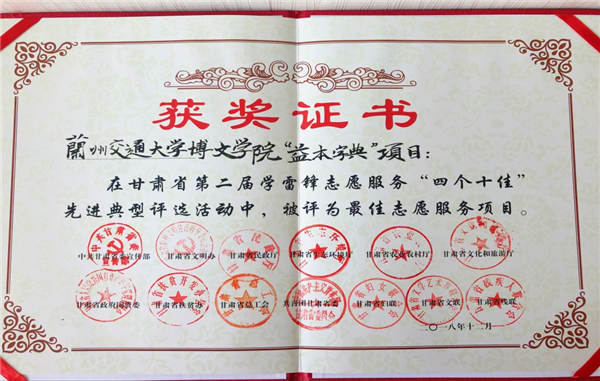 获奖证书
蘭州交通大学博文学院“益本字典”项目：
在甘肃省第二届学雷锋志愿服务“四个十佳”
先进典型评选活动中，被评为最佳志愿服务项目。
中共甘肃省委宣传部 甘肃省文明办 甘肃省民政厅 甘肃省生态环境厅 甘肃省农业农村厅 甘肃省文化和旅游厅
甘肃省政府国资委 甘肃省扶贫办 甘肃省总工会 共青团甘肃省委 甘肃省妇联 甘肃省文联 甘肃省残联
二〇一八年十二月